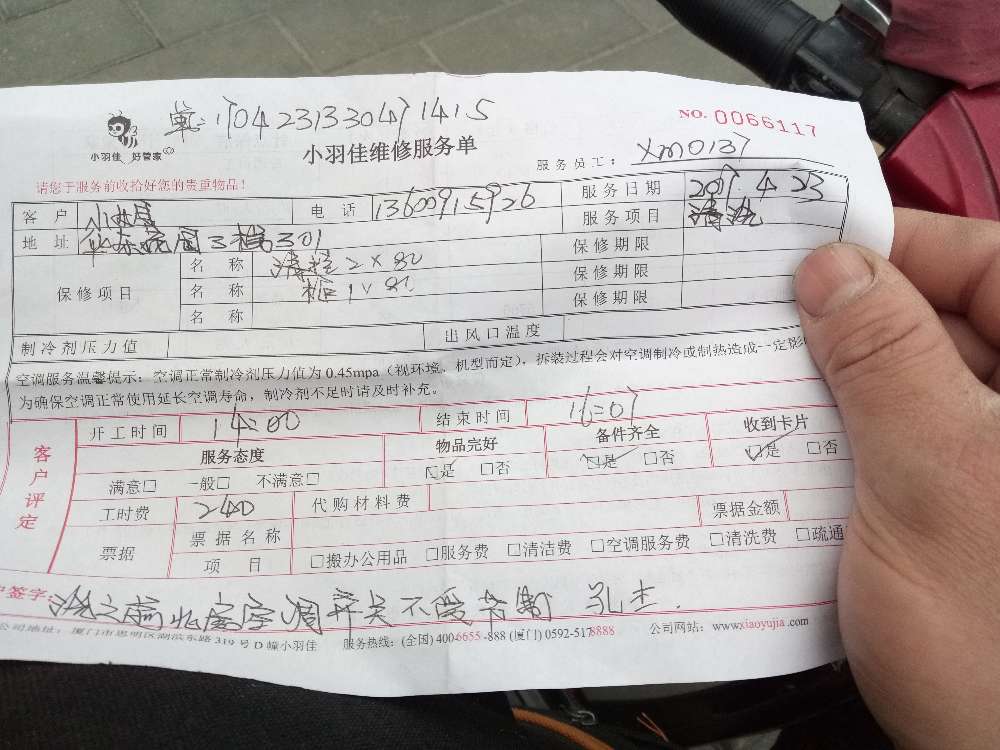 单:1704231330471415
NO.0066117
小羽佳 好管家
小羽佳维修服务单
服务员工: XM0137
请您于服务前收拾好您的贵重物品!
客户 电话 13600915926 服务日期 2017.4.23
地址 3楼301 服务项目 清洗
保修项目 名称 2×80 保修期限
名称 柜1×80 保修期限
名称 保修期限
制冷剂压力值 出风口温度
空调服务温馨提示:空调正常制冷剂压力值为0.45mpa(视环境、机型而定),拆装过程会对空调制冷或制热造成一定影
为确保空调正常使用延长空调寿命,制冷剂不足时请及时补充。
开工时间 14=00 结束时间 16=07
客户评定 服务态度 物品完好 备件齐全 收到卡片
满意□ 一般□ 不满意□ ☑是 □否 ☑是 □否 ☑是 □否
工时费 240 代购材料费 票据金额
票据 票据名称
项目 □搬办公用品 □服务费 □清洁费 □空调服务费 □清洗费 □疏通
户签字: 洗之前 空调开关不受 孔杰.
公司地址:厦门市思明区湖滨东路319号D幢小羽佳 服务热线:(全国)400-6655-888(厦门)0592-5178888 公司网站:www.xiaoyujia.com